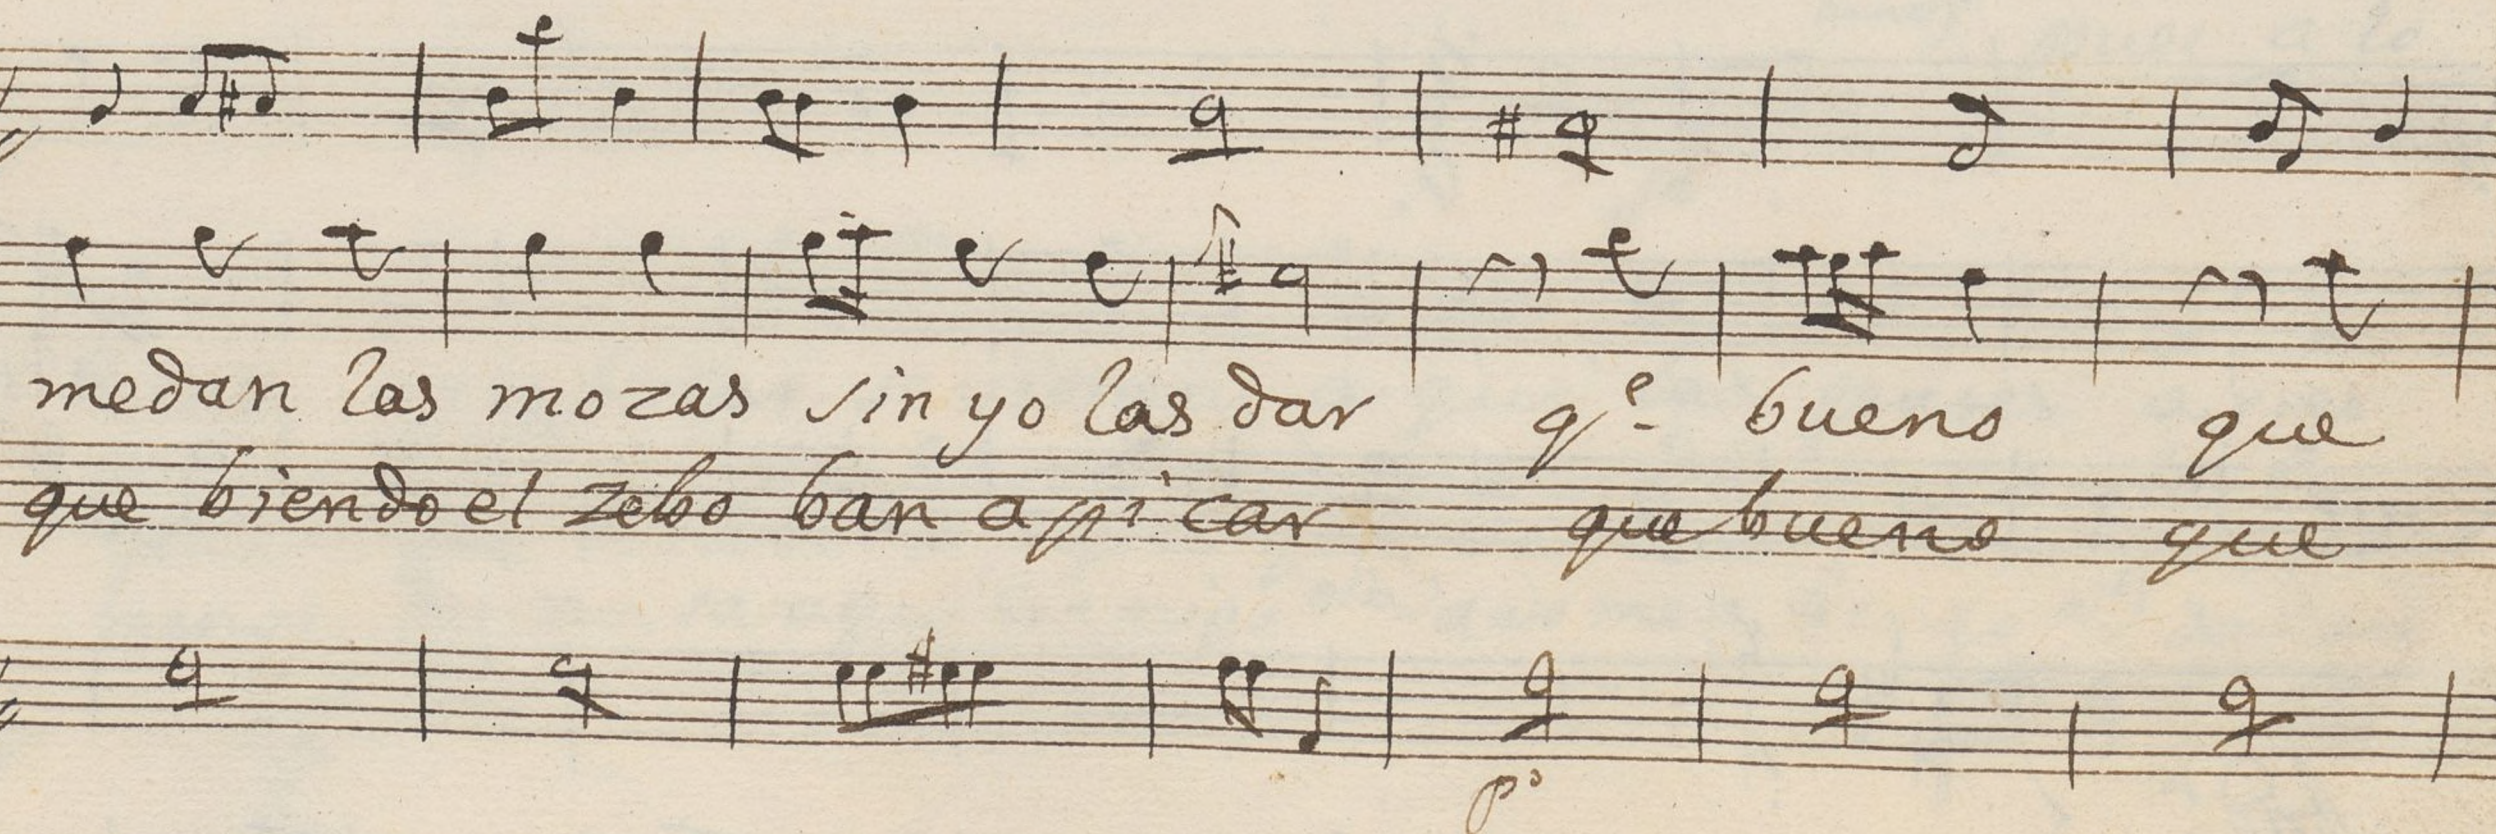 medan las mozas sin yo las dar qe bueno que
que biendo el zebo ban a picar que bueno que
po